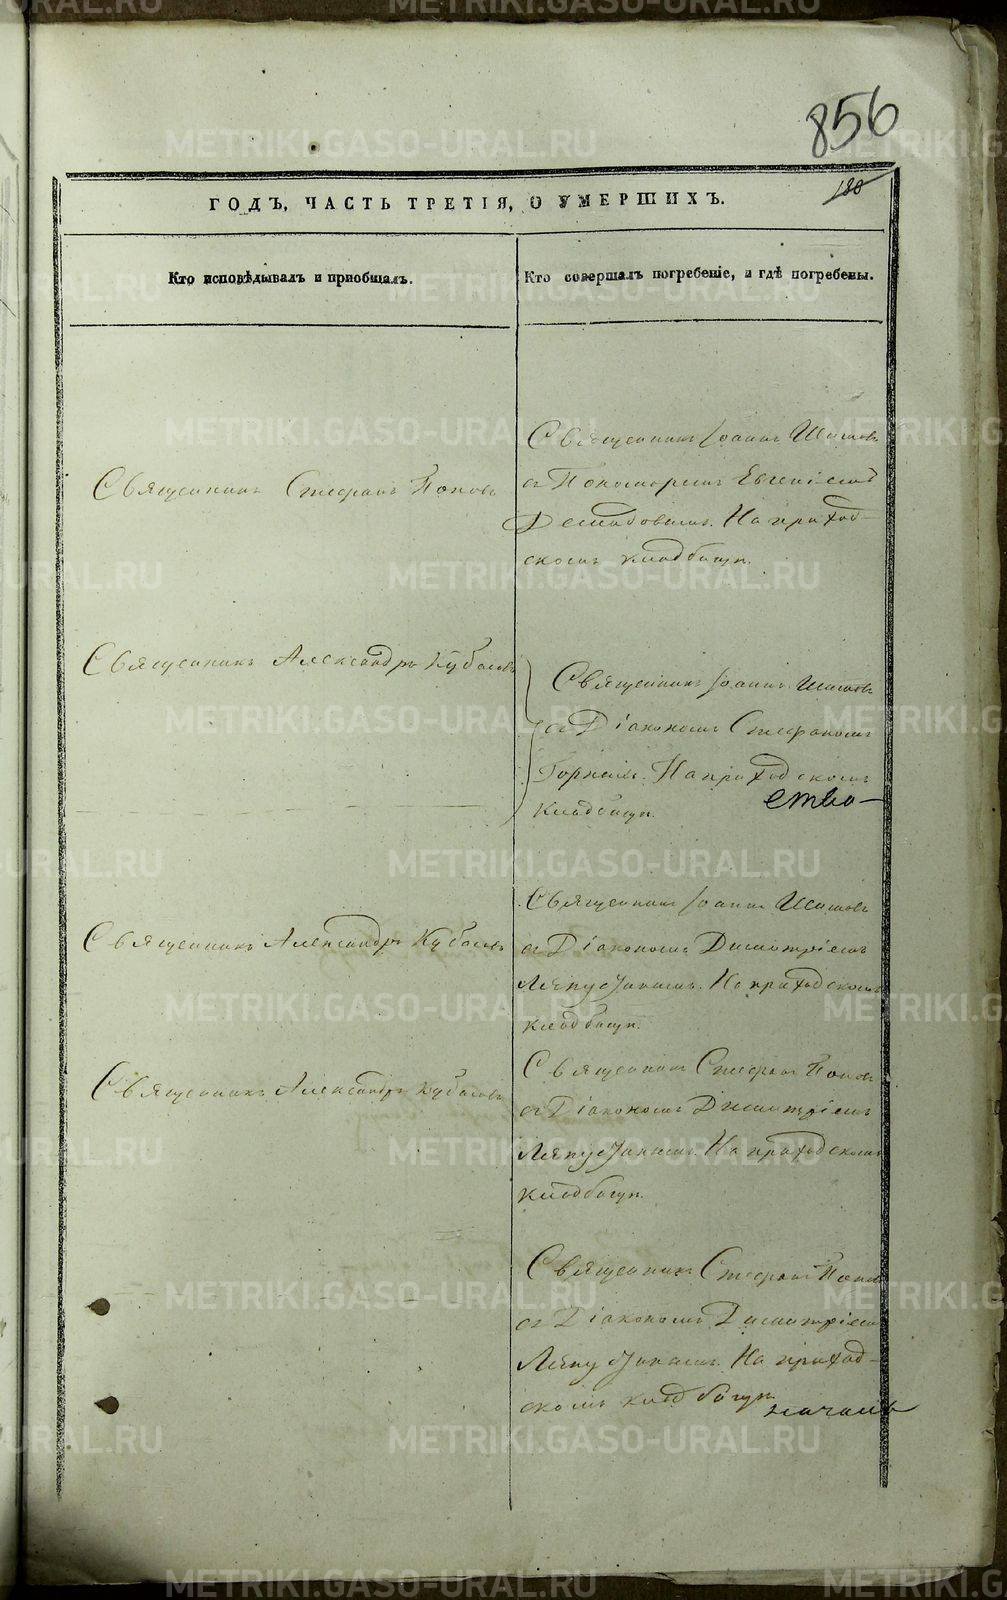 856
180
ГОДЪ, ЧАСТЬ ТРЕТІЯ, О УМЕРШИХЪ.
Кто исповѣдывалъ и пріобщалъ.
Кто совершалъ погребеніе, и гдѣ погребены.
Священникъ Стефанъ Поповъ
Священникъ Іоаннъ Шишовъ
съ Пономаремъ Евгеніемъ
На приход-
скомъ кладбищѣ.
Священникъ Александръ Кубасовъ
Священникъ Іоаннъ Шишовъ
съ Діакономъ Стефаномъ
Горнымъ. На приходскомъ
кладбищѣ.
ство
Священникъ Александръ Кубасовъ
Священникъ Іоаннъ Шишовъ
съ Діакономъ Димитріемъ
Ляпустинымъ. На приходскомъ
кладбищѣ.
Священникъ Александръ Кубасовъ
Священникъ Стефанъ Поповъ
съ Діакономъ Димитріемъ
Ляпустинымъ. На приходскомъ
кладбищѣ.
Священникъ Стефанъ Поповъ
съ Діакономъ Димитріемъ
Ляпустинымъ. На приход-
скомъ кладбищѣ.
METRIKI.GASO-URAL.RU